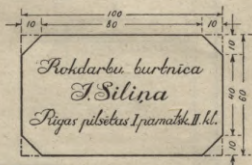 100
10 80 10
Rokdarbu burtnica
J. Siliņa
Rīgas pilsētas I pamatsk. II. kl.
10
40
10
60